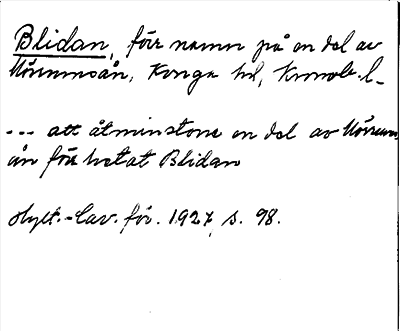 Blidan, förr namn på en del av
Mörrumsån, Konga hd, Kronob. l.
--- att åtminstone en del av Mörrums
ån förr hetat Blidan
Hylt.-Cav. för. 1927, s. 98.